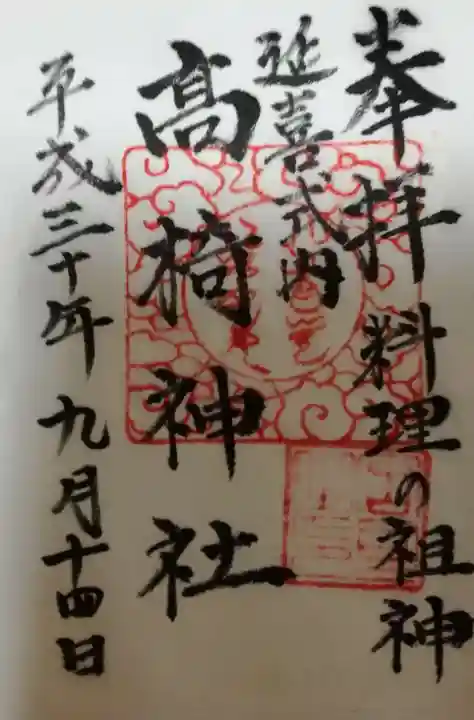 奉拝 料理の祖神
延喜式内
髙椅神社
平成三十年九月十四日